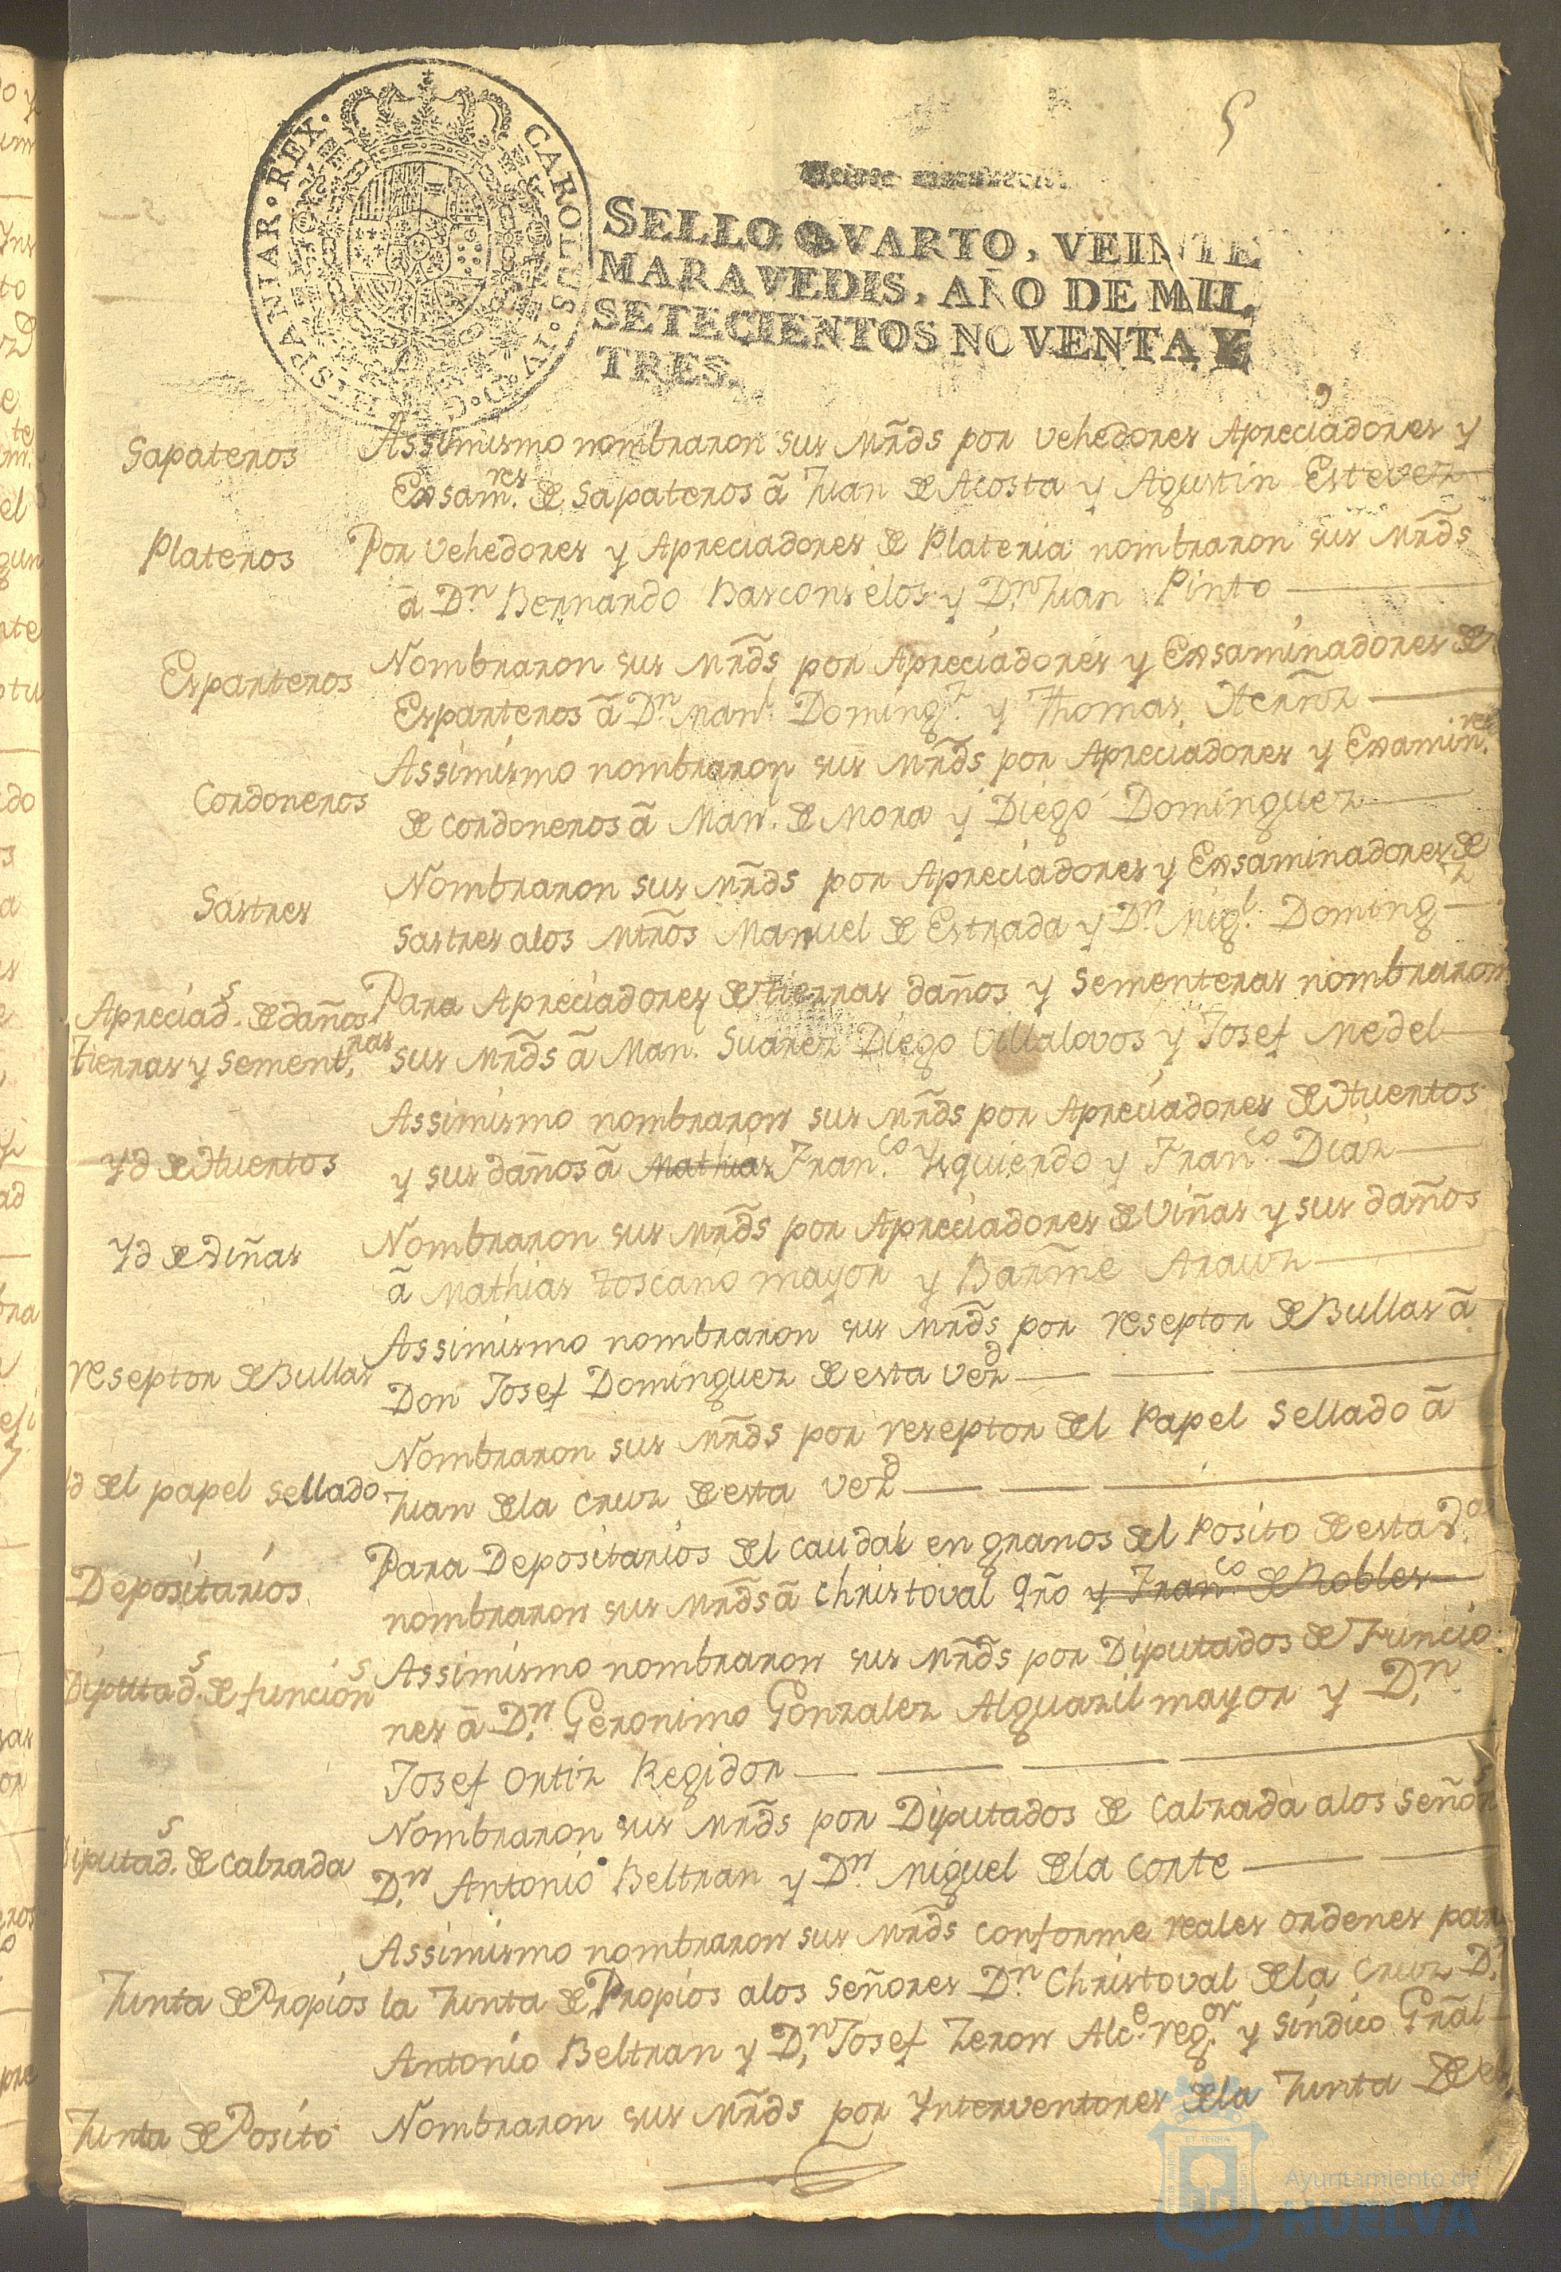 5
Veinte maravedis.
CAROLUS IV. D. G. HISPANIAR. REX.
SELLO QVARTO, VEINTE
MARAVEDIS, AÑO DE MIL
SETECIENTOS NOVENTA Y
TRES.
Sapateros
Assimismo nombraron sus Mrds por vehedores Apreciadores y
Exsamres. de Sapateros â Juan de Acosta y Agustin Estevez
Plateros
Por vehedores y Apreciadores de Plateria nombraron sus Mrds
â Dn. Bernardo Basconselos y Dn. Juan Pinto
Esparteros
Nombraron sus Mrds por Apreciadores y Exsaminadores de
Esparteros â Dn. Manl. Domingz. y Thomas Hernz
Cordoneros
Assimismo nombraron sus Mrds por Apreciadores y Examinres.
de cordoneros â Manl. de Mora y Diego Dominguez
Sastres
Nombraron sus Mrds por Apreciadores y Exsaminadores de
Sastres alos Mtros Manuel de Estrada y Dn. Migl. Domingz
Apreciads. de daños
tierras y sementras.
Para Apreciadores de tierras daños y sementeras nombraron
sus Mrds â Man. Suarez Diego Villalovos y Josef Medel
Yd de Huertos
Assimismo nombraron sus Mrds por Apreciadores de Huertos
y sus daños â Mathias Franco. Ysquierdo y Franco. Diaz
Yd de viñas
Nombraron sus Mrds por Apreciadores de Viñas y sus daños
â Mathias Toscano mayor y Barme Arauz
reseptor de Bullas
Assimismo nombraron sus Mrds por reseptor de Bullas â
Don Josef Dominguez de esta vezd
Yd del papel sellado
Nombraron sus Mrds por reseptor del Papel Sellado â
Juan dela Cruz de esta vezd
Depositarios
Para Depositarios del caudal en granos del Posito de esta Va.
nombraron sus Mrds â Christoval Qro y Franco. de Robles
Diputads. de funcions
Assimismo nombraron sus Mrds por Diputados de Funcio
nes â Dn. Geronimo Gonzalez Alguazil mayor y Dn.
Josef Ortiz Regidor
Diputads. de Calzada
Nombraron sus Mrds por Diputados de Calzada alos Señors
Dn. Antonio Beltran y Dn. Miguel dela Corte
Junta de Propios
Assimismo nombraron sus Mrds conforme reales ordenes para
la Junta de Propios alos Señores Dn. Christoval dela Cruz Dn.
Antonio Beltran y Dn. Josef Zeron Alce. regor. y Sindico Gral
Junta de Posito
Nombraron sus Mrds por Ynterventores dela Junta de
Ayuntamiento de
HUELVA